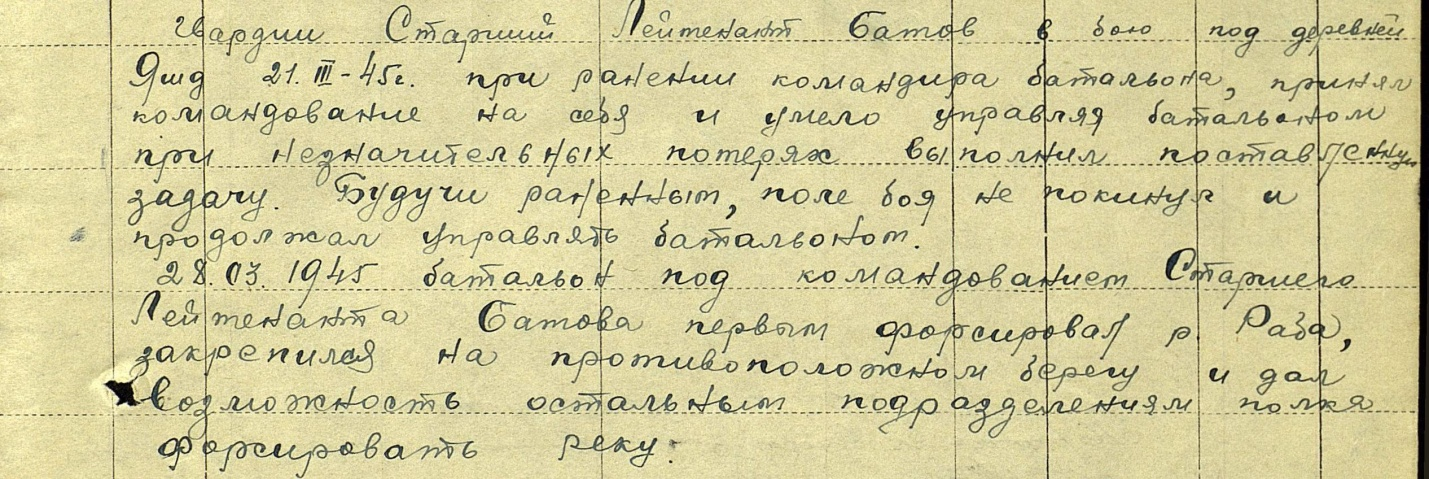 Гвардии Старший Лейтенант Батов в бою под деревней
Яшд 21.III-45г. при ранении командира батальона, принял
командование на себя и умело управляя батальоном
при незначительных потерях выполнил поставленную
задачу. Будучи раненным, поле боя не покинул и
продолжал управлять батальоном.
28.03.1945 батальон под командованием Старшего
Лейтенанта Батова первым форсировал р. Раба,
закрепился на противоположном берегу и дал
возможность остальным подразделениям полка
форсировать реку.